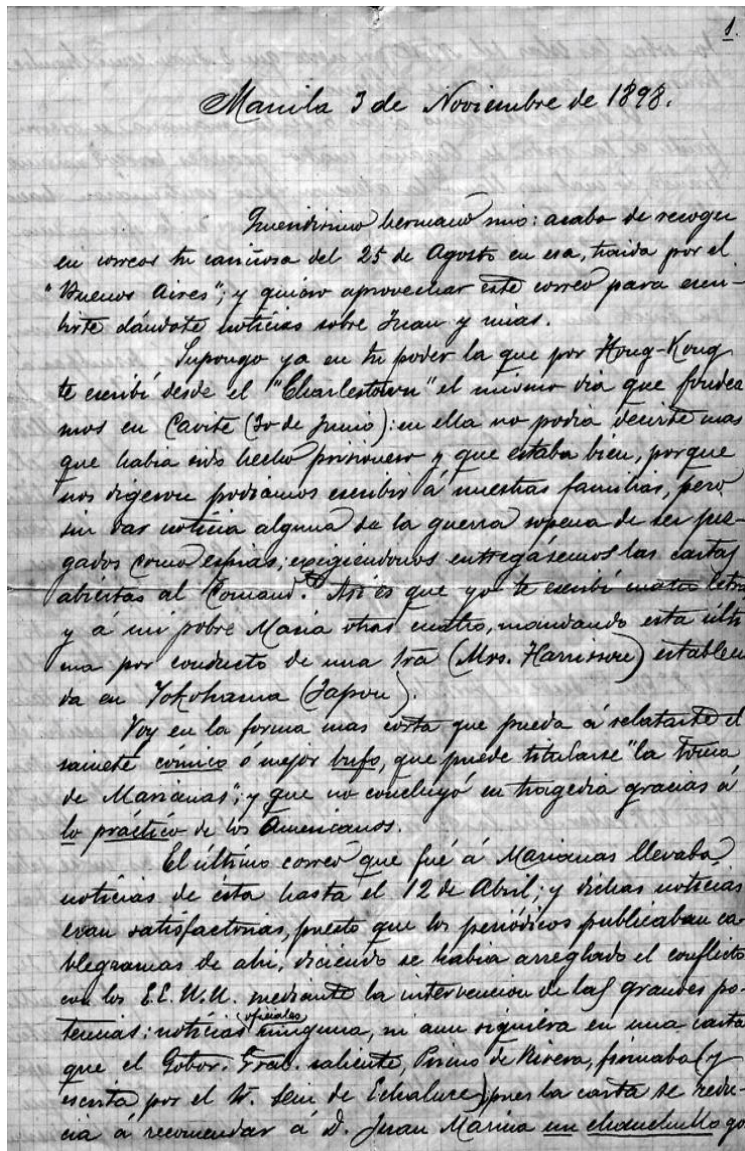 1.
Manila 3 de Noviembre de 1898.
Queridisimo hermano mio: acabo de recoger
en correos tu cariñosa del 25 de Agosto en esa, traida por el
"Buenos Aires"; y quiero aprovechar este correo para escri-
birte dándote noticias sobre Juan y mias.
Supongo ya en tu poder la que por Hong-Kong
te escribí desde el "Charlestown" el mismo dia que fondea
mos en Cavite (30 de Junio): en ella no podia decirte mas
que habia sido hecho prisionero y que estaba bien, porque
nos digeron podiamos escribir á nuestras familias, pero
sin dar noticia alguna de la guerra sopena de ser juz-
gados como espias; exigiendonos entregásemos las cartas
abiertas al Comand.te Asi es que yo te escribí cuatro letras
y á mi pobre Maria otras cuatro, mandando esta últi
ma por conducto de una Sra (Mrs. Harrisson) estableci
da en Yokohama (Japon).
Voy en la forma mas corta que pueda á relatarte el
sainete cómico ó mejor bufo, que puede titularse "la toma
de Marianas"; y que no concluyó en tragedia gracias á
lo práctico de los Americanos.
El último correo que fué á Marianas llevaba
noticias de ésta hasta el 12 de Abril; y dichas noticias
eran satisfactorias, puesto que los periódicos publicaban ca-
blegramas de ahi, diciendo se habia arreglado el conflicto
con los E.E. U.U. mediante la intervencion de las grandes po-
tencias: noticias oficiales ninguna, ni aun siquiera en una carta
que el Gobor. Gral. saliente, Primo de Rivera, firmaba (y
escrita por el Sr. de Echaluce) pues la carta se redu-
cia á recomendar á D. Juan Marina un chanchullo go